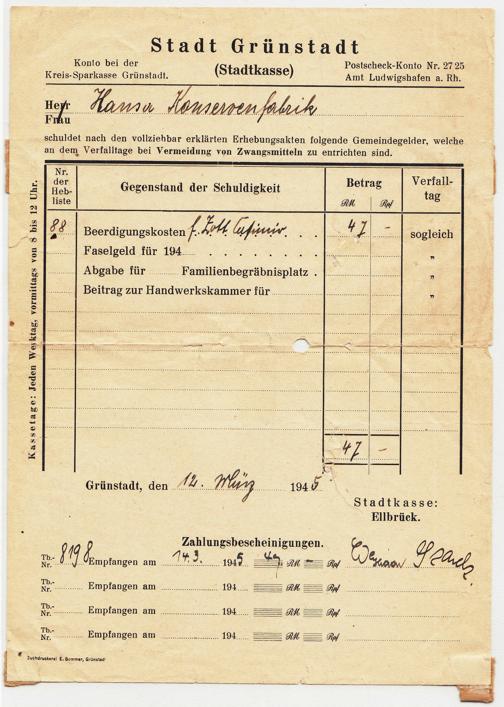 Stadt Grünstadt
(Stadtkasse)
Konto bei der
Kreis-Sparkasse Grünstadt.
Postscheck-Konto Nr. 27 25
Amt Ludwigshafen a. Rh.
Herr
Frau
Hansa Konservenfabrik
schuldet nach den vollziehbar erklärten Erhebungsakten folgende Gemeindegelder, welche
an dem Verfalltage bei Vermeidung von Zwangsmitteln zu entrichten sind.
Nr. der Heb- liste
Gegenstand der Schuldigkeit
Betrag
RM Rpf
Verfall- tag
88 Beerdigungskosten f. Zott. 47 - sogleich
Faselgeld für 194 . . . . . . . . "
Abgabe für Familienbegräbnisplatz . "
Beitrag zur Handwerkskammer für "
47 -
Kassetage: Jeden Werktag, vormittags von 8 bis 12 Uhr.
Grünstadt, den 12. März 1945
Stadtkasse:
Ellbrück.
Zahlungsbescheinigungen.
Tb.- Nr. 8198 Empfangen am 14.3. 1945 47 RM - Rpf
Tb.- Nr. Empfangen am 194 RM Rpf
Tb.- Nr. Empfangen am 194 RM Rpf
Tb.- Nr. Empfangen am 194 RM Rpf
Buchdruckerei E. Sommer, Grünstadt